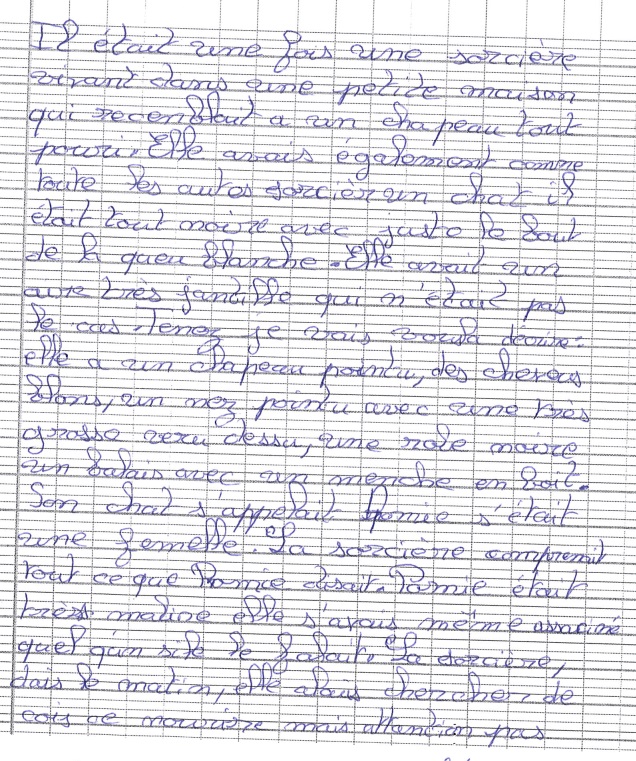 Il était une fois une sorcière
vivant dans une petide maison
qui recenblait a un chapeau tout
pouri. Elle avais également comme
toute les autes sorcière un chat il
était tout noire avec juste le bout
de la queu blanche. Elle avait un
aire très jantille qui n'était pas
le cas. Tenez je vais vousd décrire:
elle a un chapeau pointu, des cheveus
blans, un nez pointu avec une très
grosse veru dessu, une robe noire
un balais avec un menche en boit.
Son chat s'appelait Pomie s'était
une femelle. La sorcière comprenit
tout ce que Pomie disait. Pomie étaut
très maline elle s'avais même assasiné
quel qun sile le falait. La sorcière,
dais le matin, elle alais chercher de
cois ce nourire mais attantion pas